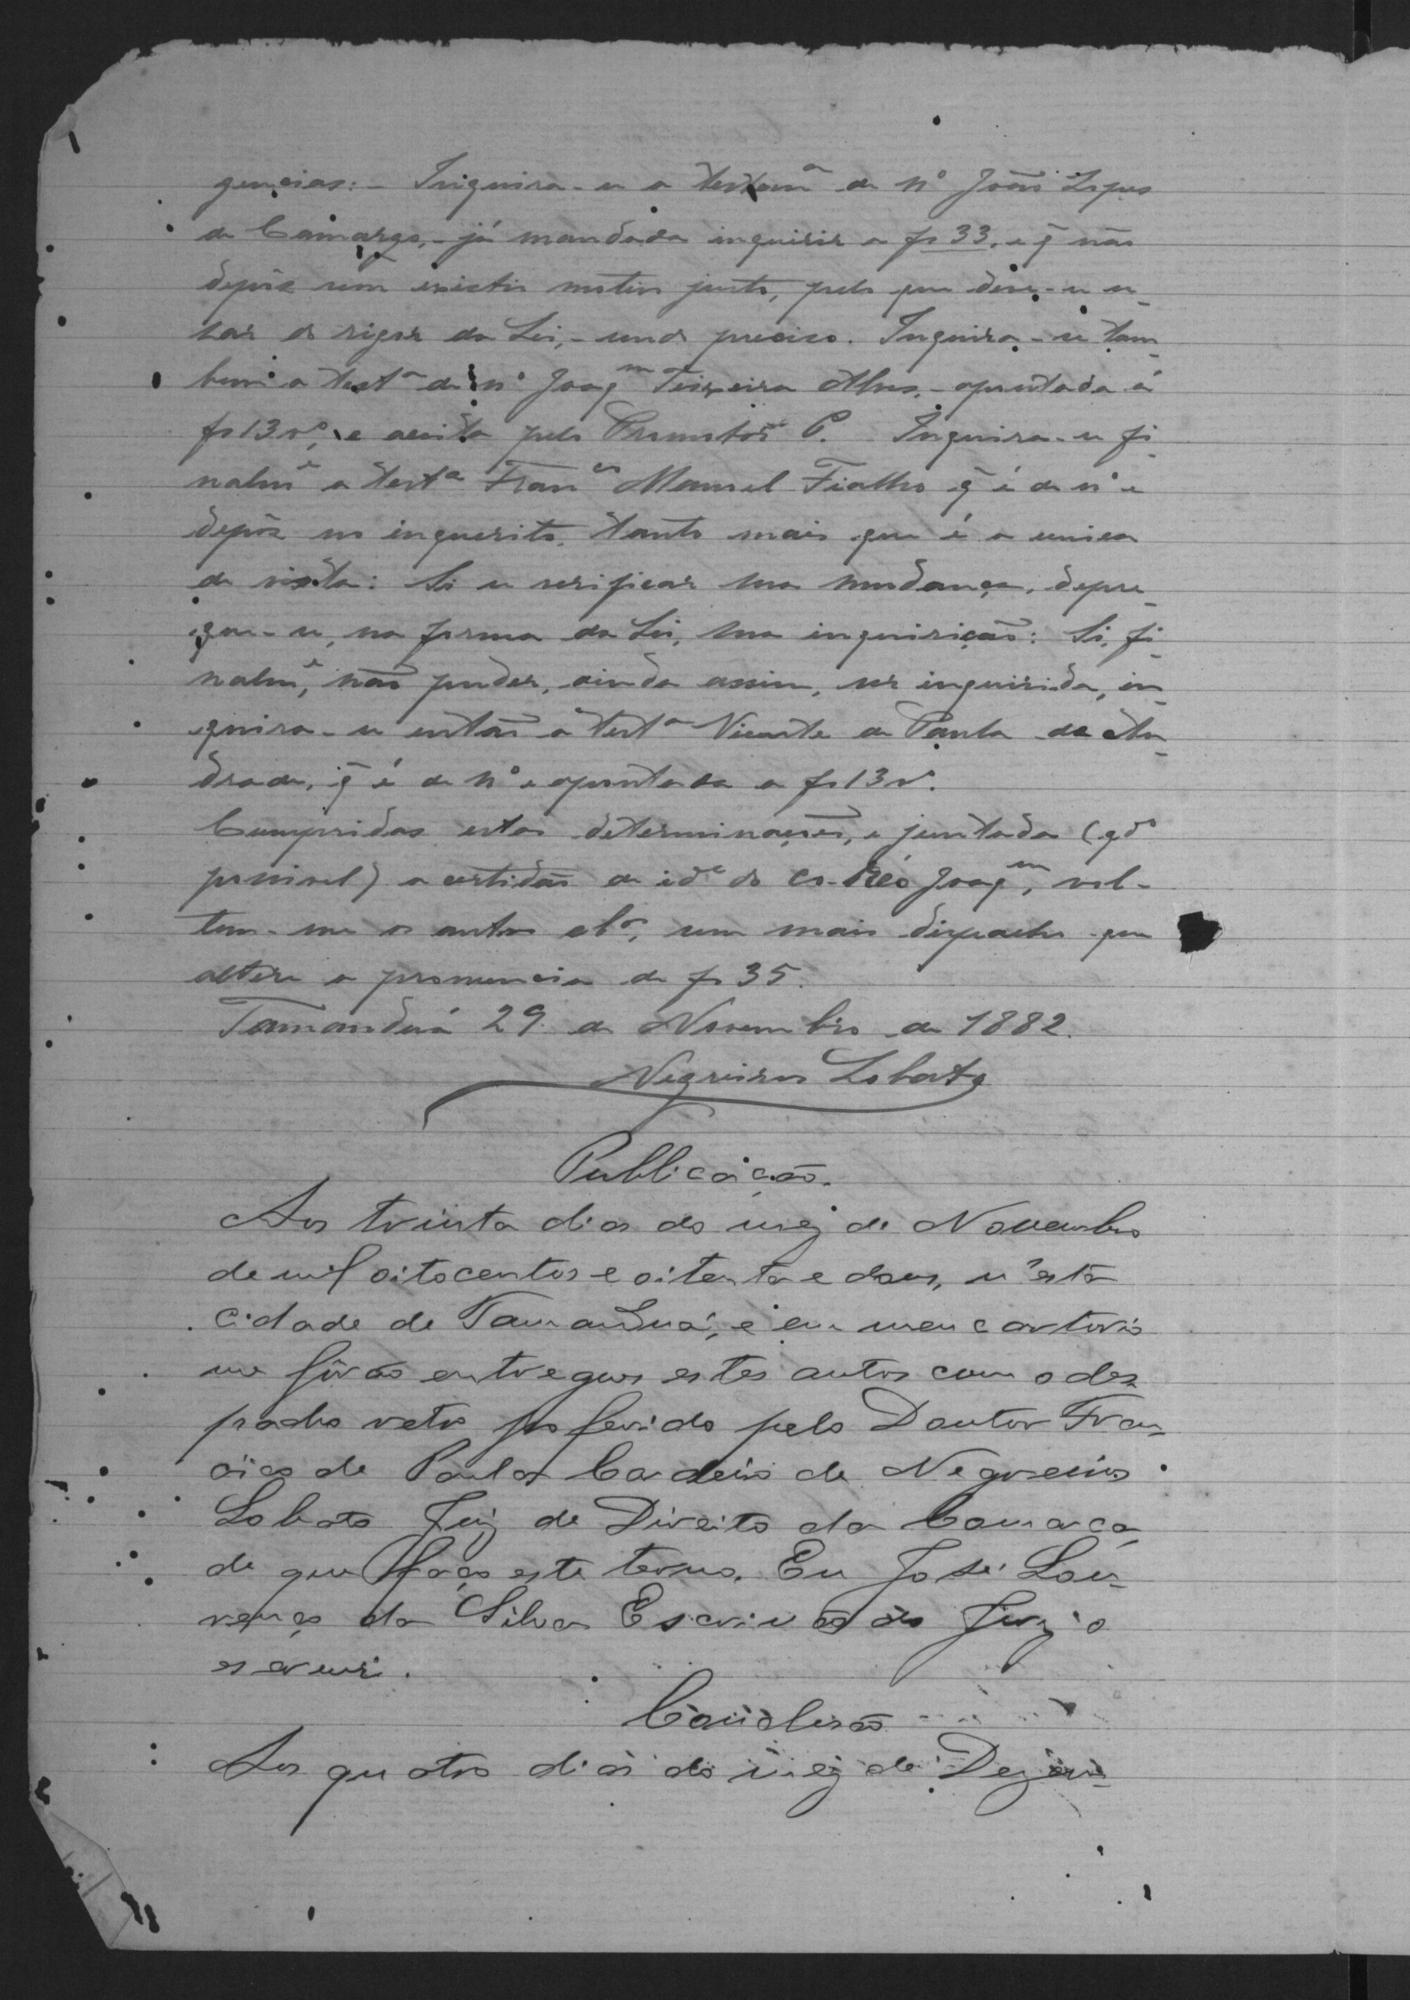 gencias: - Inquira-se a testemª de nº João Lopes
de Camargo, - já mandada inquirir a fs 33, e q̃ não
depôz sem existir motivo justo, pelo que deve-se u-
sar do rigor da Lei, - sendo preciso. Inquira-se tam-
bem a testª de nº Joaqm Teixeira Alves, - apontada á
fs 13 vº, e aceita pelo Promotor P. Inquira-se fi-
nalme a testª Franco Manoel Fialho q̃ é de nº e
depôz no inquerito, tanto mais que é a unica
de vista: Si se verificar sua mudança, depre-
que-se, na forma da Lei, sua inquirição: Si, fi-
nalme, não puder, ainda assim, ser inquirida, in-
quira-se então a testª Vicente de Paula de An-
drade, q̃ é de nº e apontada a fs 13 vº.
Cumpridas estas determinações, e juntada (qdo
possivel) a certidão de ide do co-Réo Joaqm, vol-
tem-me os autos clos, sem mais despacho que
altere a pronuncia de fs 35.
Tamanduá 29 de Novembro de 1882.
Negreiros Lobato
Publicação.
Aos trinta dias do mez de Novembro
de mil oitocentos e oitenta e dous, n'esta
cidade de Tamanduá, e em meu cartorio
me fôrão entregues estes autos com o des-
pacho retro proferido pelo Doutor Fran-
cisco de Paula Cordeiro de Negreiros
Lobato Juiz de Direito da Comarca
de que faço este termo. Eu José Lou-
renço da Silva Escrivão do Jury o
escrevi.
Conclusão
Aos quatro dias do mez de Dezem-